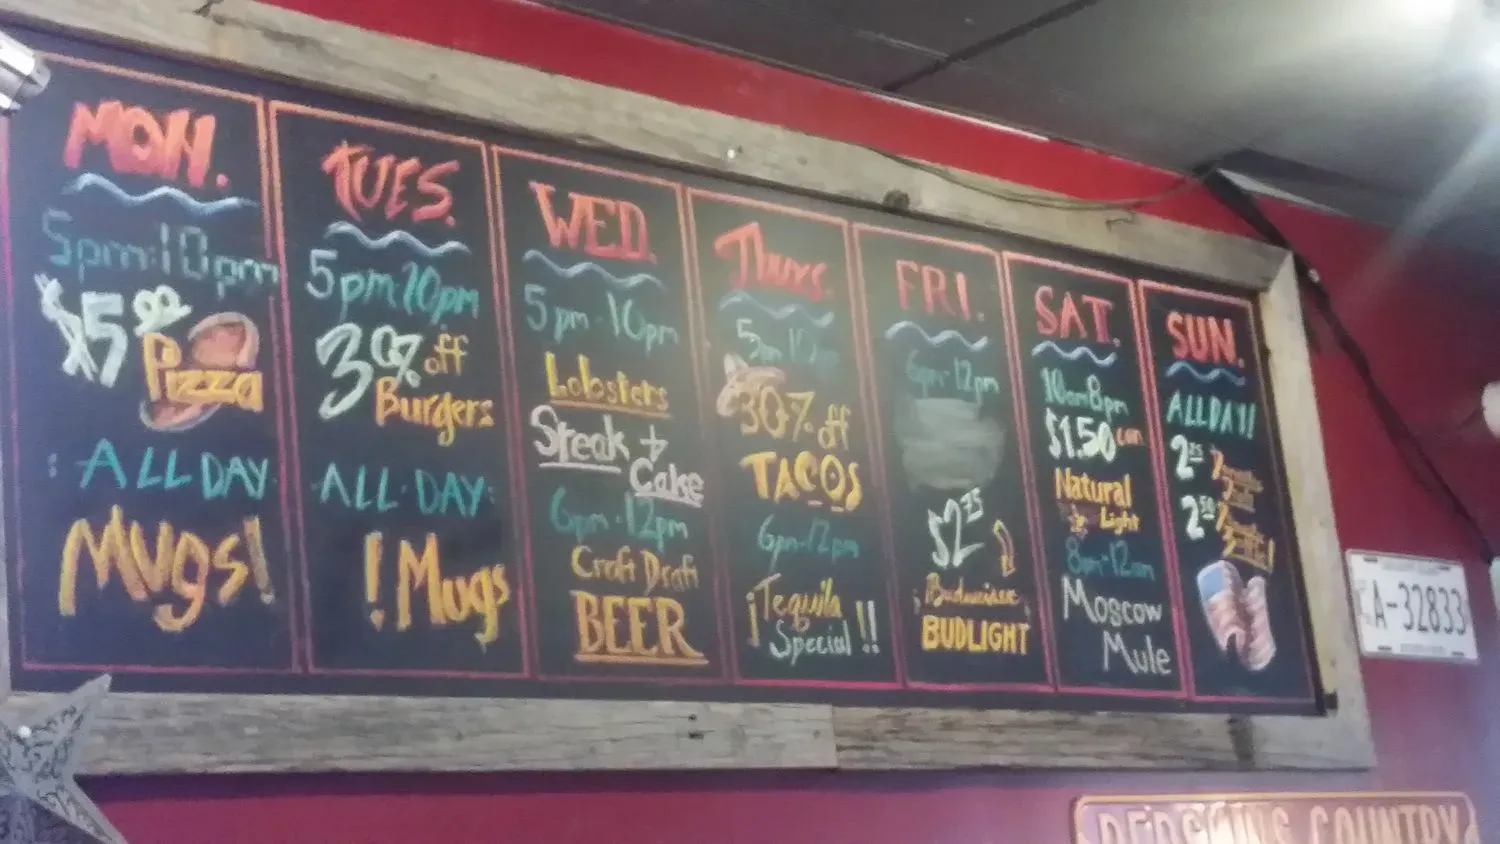 MON.
5pm-10pm
$5.00
Pizza
ALL DAY
Mugs!
TUES.
5pm-10pm
30% off
Burgers
ALL DAY
! Mugs
WED.
5pm-10pm
Lobsters
Steak +
Cake
6pm-12pm
Craft Draft
BEER
Thurs.
5pm 10pm
30% off
TACOS
6pm-12pm
¡Tequila
Special!!
FRI.
6pm-12pm
$2.75
Budweiser
BUDLIGHT
SAT.
10am8pm
$1.50 can
Natural
Light
8pm-12am
Moscow
Mule
SUN.
ALLDAY!
2.25
2.50
A-32833
REDSKINS COUNTRY